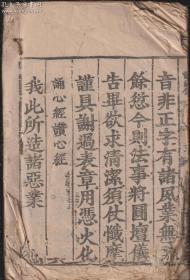 音非正字有諸風業無
餘愆今則法事將圓壇儀
告畢欲求清潔須仗懺摩
謹具謝過表章用憑火化
誦心經讚心經
我此所造諸惡業